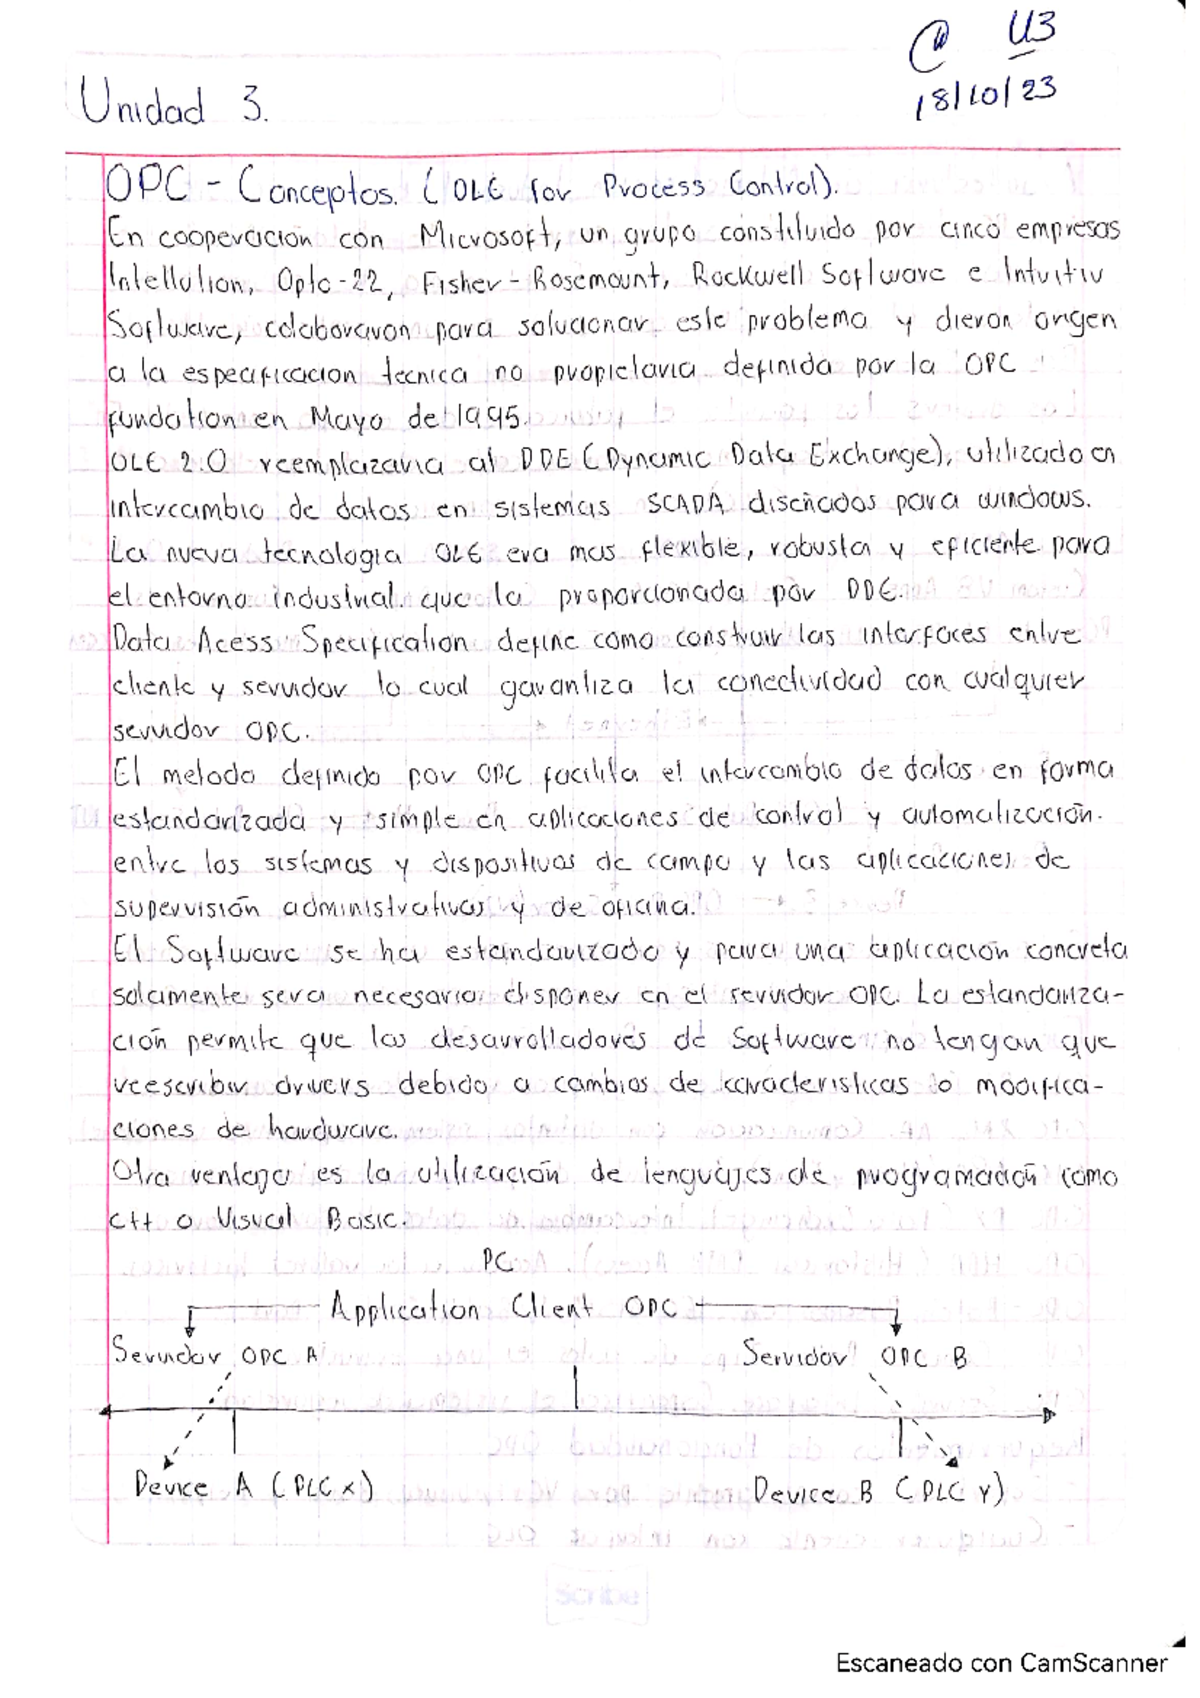 @ U3
18/10/23
Unidad 3.
OPC - Conceptos. (OLE for Process Control).
En cooperacion con Microsoft, un grupo constituido por cinco empresas
Intellution, Opto-22, Fisher-Rosemount, Rockwell Software e Intuitiv
Software, colaboraron para solucionar este problema y dieron origen
a la especificacion tecnica no propietaria definida por la OPC
fundation en Mayo de 1995.
OLE 2.0 reemplazaria al DDE (Dynamic Data Exchange), utilizado en
intercambio de datos en sistemas SCADA diseñados para windows.
La nueva tecnologia OLE era mas flexible, robusta y eficiente para
el entorno industrial que la proporcionada por DDE.
Data Acess Specification define como construir las interfaces entre
cliente y servidor lo cual garantiza la conectividad con cualquier
servidor OPC.
El metodo definido por OPC facilita el intercambio de datos en forma
estandarizada y simple en aplicaciones de control y automatización.
entre los sistemas y dispositivos de campo y las aplicaciones de
supervisión administrativas y de oficina.
El Software se ha estandarizado y para una aplicación concreta
solamente sera necesario disponer en el servidor OPC. La estandariza-
ción permite que los desarrolladores de Software no tengan que
reescribir drivers debido a cambios de caracteristicas o modifica-
ciones de hardware.
Otra ventaja es la utilización de lenguajes de programación como
C++ o Visual Basic.
PC
Application Client OPC
Servidor OPC A Servidor OPC B
Device A (PLC x) Device B (PLC Y)
Scribe
Escaneado con CamScanner